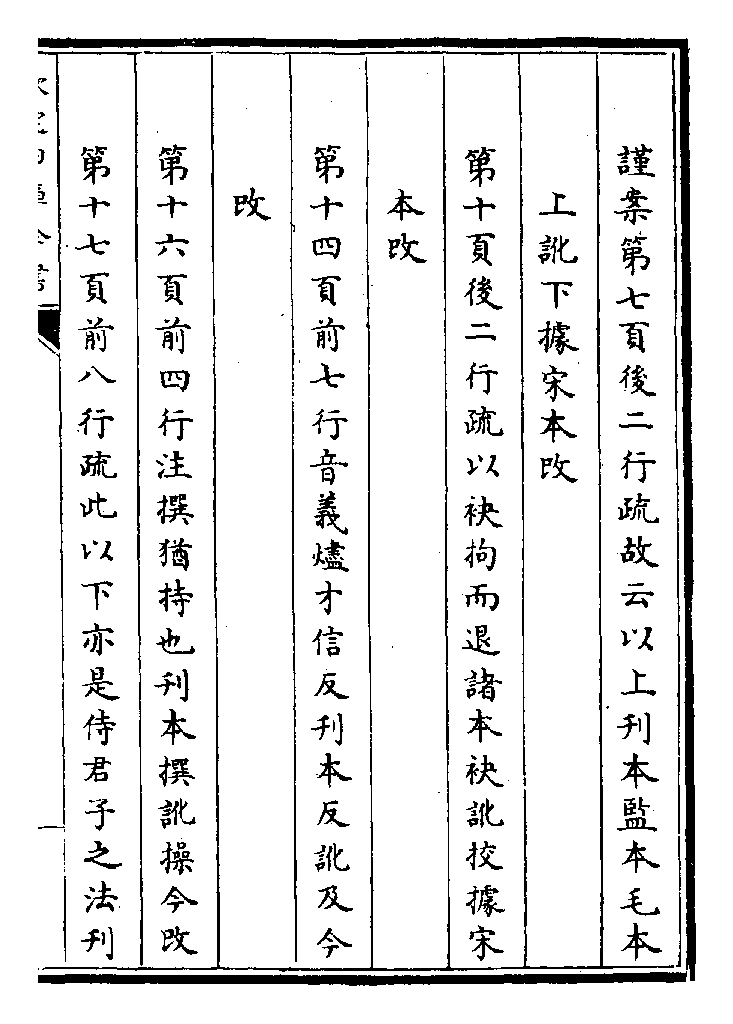 謹案第七頁後二行疏故云以上刋本監本毛本
上訛下據宋本改
第十頁後二行疏以袂拘而退諸本袂訛挍據宋
本改
第十四頁前七行音義燼才信反刋本反訛及今
改
第十六頁前四行注撰猶持也刋本撰訛操今改
第十七頁前八行疏此以下亦是侍君子之法刋